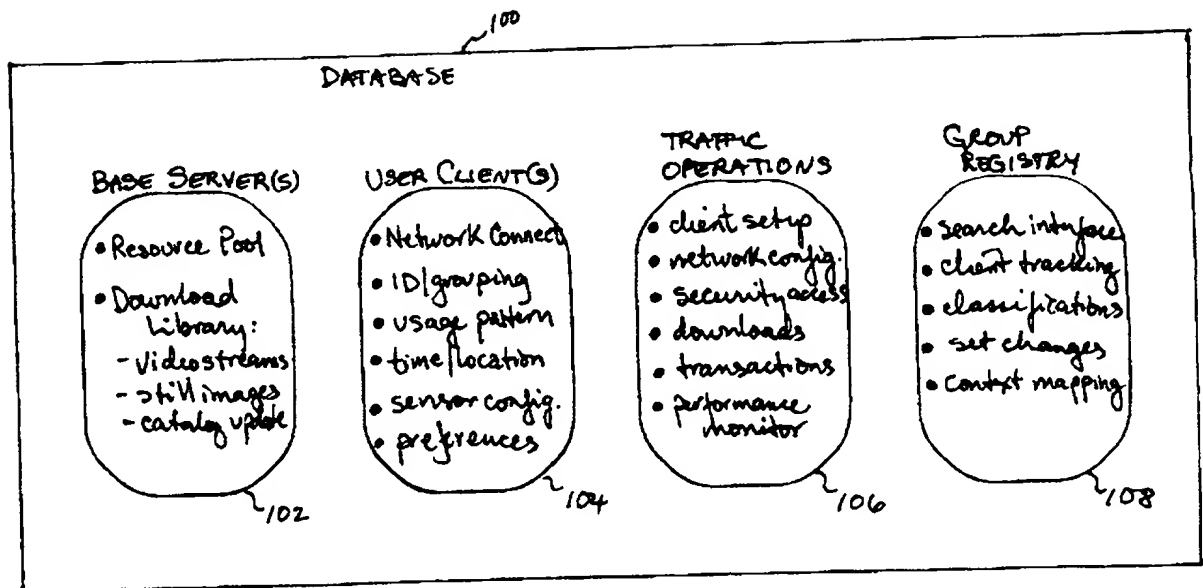 100
DATABASE
BASE SERVER(S)
• Resource Pool
• Download
Library:
- videostreams
- still images
- catalog update
102
USER CLIENT(S)
• Network Connect
• ID/grouping
• usage pattern
• time/location
• sensor config.
• preferences
104
TRAFFIC
OPERATIONS
• client setup
• network config.
• security access
• downloads
• transactions
• performance
monitor
106
GROUP
REGISTRY
• search interface
• client tracking
• classifications
• set changes
• context mapping
108